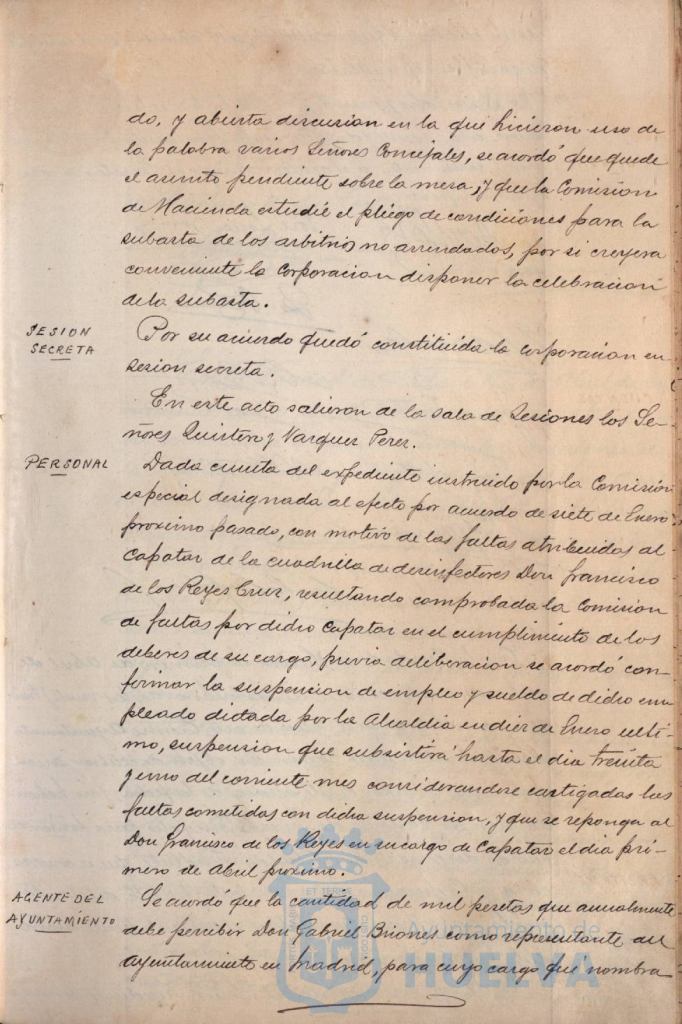 do, y abierta discusion en la que hicieron uso de
la palabra varios Señores Concejales, se acordó que quede
el asunto pendiente sobre la mesa, y que la Comision
de Hacienda estudie el pliego de condiciones para la
subasta de los arbitrios no arrendados, por si creyera
conveniente la Corporacion disponer la celebracion
de la subasta.
SESION
SECRETA
Por su acuerdo quedó constituida la Corporacion en
sesion secreta.
En este acto salieron de la Sala de Sesiones los Se-
ñores Quintero y Vazquez Perez.
PERSONAL
Dada cuenta del expediente instruido por la Comisión
especial designada al efecto por acuerdo de siete de Enero
proximo pasado, con motivo de las faltas atribuidas al
Capataz de la cuadrilla de desinfectores Don Francisco
de los Reyes Cruz, resultando comprobada la comision
de faltas por dicho Capataz en el cumplimiento de los
deberes de su cargo, previa deliberacion se acordó con-
firmar la suspension de empleo y sueldo de dicho em-
pleado dictada por la Alcaldia en diez de Enero ulti-
mo, suspension que subsistirá hasta el dia treinta
y uno del corriente mes considerandose castigadas las
faltas cometidas con dicha suspension, y que se reponga al
Don Francisco de los Reyes en su cargo de Capataz el dia pri-
mero de Abril proximo.
AGENTE DEL
AYUNTAMIENTO
Se acordó que la cantidad de mil pesetas que anualmente
debe percibir Don Gabriel Briones como representante del
Ayuntamiento en Madrid, para cuyo cargo fué nombra-
Ayuntamiento de
HUELVA